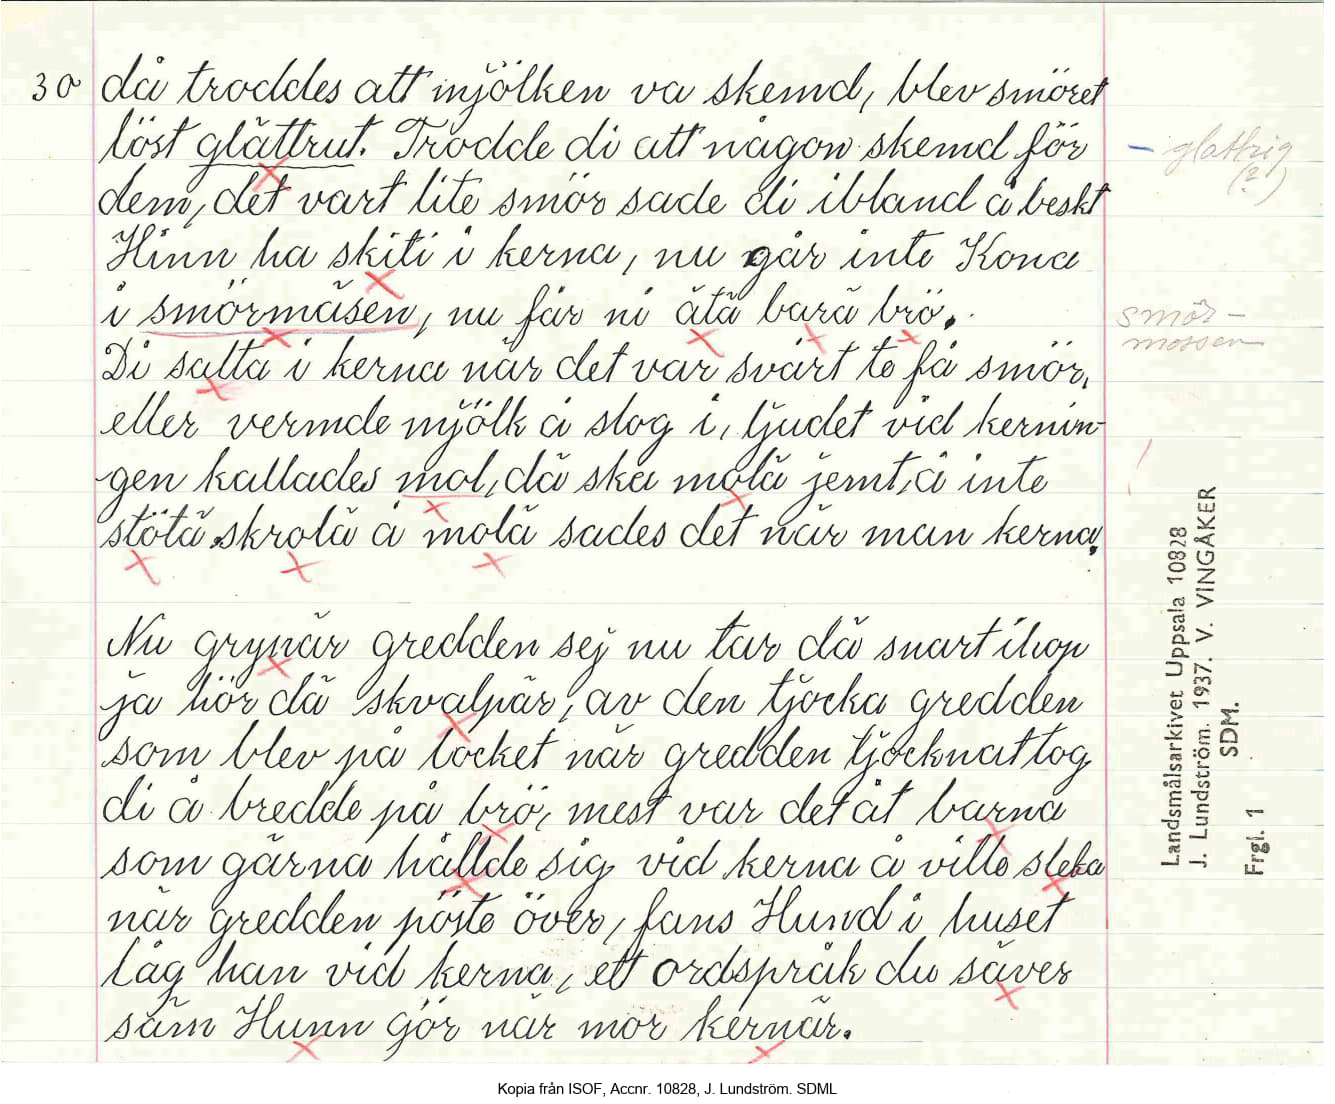 30 då troddes att mjölken va skemd, blev smöret
löst glättrut. Trodde di att någon skemd för
dem, det vart lite smör sade di ibland å beskt
Hinn ha skiti i kerna, nu går inte Kona
i smörmåsen, nu får ni ätä barä brö.
Di salta i kerna när det var svårt te få smör,
eller vermde mjölk å slog i, ljudet vid kernin-
gen kallades mol, dä ska molä jemt, å inte
stötä. skrolä å molä sades det när man kerna.
Nu grynär gredden sej nu tar dä snart ihop
ja hör dä skvalpär, av den tjocka gredden
som blev på locket när gredden tjocknat tog
di å bredde på brö, mest var det åt barna
som gärna hållde sig vid kerna å ville sleka
när gredden pöste över, fans Hund i huset
låg han vid kerna, ett ordspråk du säver
säm Hunn gör när mor kernär.
– glattrig
(?)
smör-
mossen
Landsmålsarkivet Uppsala 10828
J. Lundström. 1937. V. VINGÅKER
SDM.
Frgl. 1
Kopia från ISOF, Accnr. 10828, J. Lundström. SDML